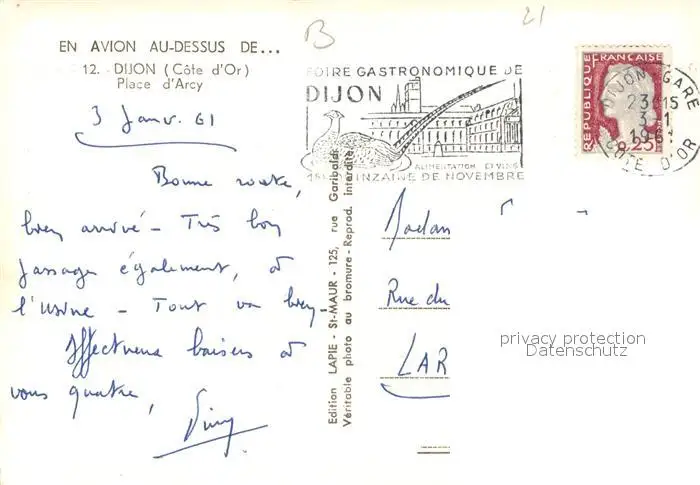 EN AVION AU-DESSUS DE...
12. - DIJON (Côte d'Or)
Place d'Arcy
3 Janv. 61
Bonne route,
bien arrivé - Très bon
passage également, à
l'usine - Tout va bien -
Affectueux baisers à
vous quatre,
Edition LAPIE - St-MAUR - 125, rue Garibaldi
Véritable photo au bromure - Reprod. interdite
B
21
FOIRE GASTRONOMIQUE DE
DIJON
ALIMENTATION ET VINS
1ère QUINZAINE DE NOVEMBRE
REPUBLIQUE FRANÇAISE
0,25
DIJON GARE
23H15
3-1
1961
COTE D'OR
Madam
Rue du
LAR
privacy protection
Datenschutz